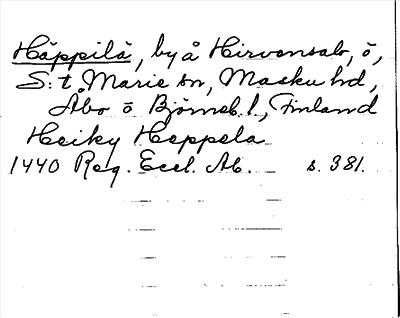 Häppilä, by å Hirvonsalo, ö,
S:t Marie sn, Masku hd,
Åbo o Björneb. l., Finland
Heiky Heppela
1440 Reg. Eccl. Ab. s. 381.